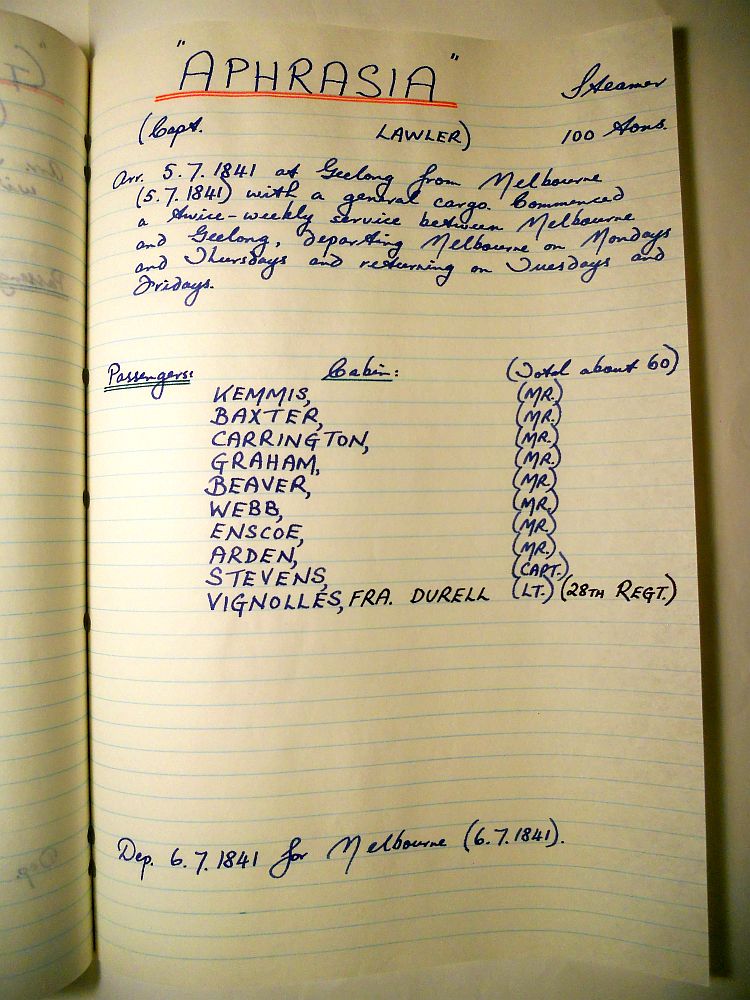 "APHRASIA" Steamer
(Capt. LAWLER) 100 tons.
Arr. 5.7.1841 at Geelong from Melbourne
(5.7.1841) with a general cargo. Commenced
a twice-weekly service between Melbourne
and Geelong, departing Melbourne on Mondays
and Thursdays and returning on Tuesdays and
Fridays.
Passengers: Cabin: (Total about 60)
KEMMIS, (MR.)
BAXTER, (MR.)
CARRINGTON, (MR.)
GRAHAM, (MR.)
BEAVER, (MR.)
WEBB, (MR.)
ENSCOE, (MR.)
ARDEN, (MR.)
STEVENS, (CAPT.)
VIGNOLLES, FRA. DURELL (LT.) (28TH REGT.)
Dep. 6.7.1841 for Melbourne (6.7.1841).